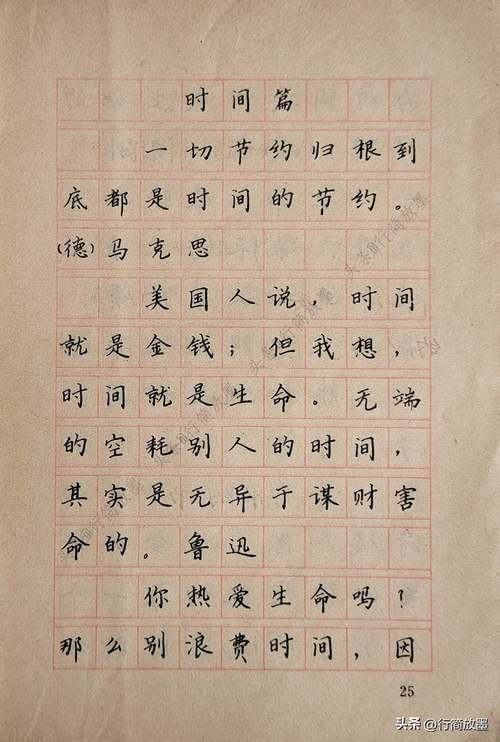 时间篇
一切节约归根到
底都是时间的节约。
(德)马克思
美国人说，时间
就是金钱；但我想，
时间就是生命。无端
的空耗别人的时间，
其实是无异于谋财害
命的。鲁迅
你热爱生命吗？
那么别浪费时间，因
25
头条@行简放墨